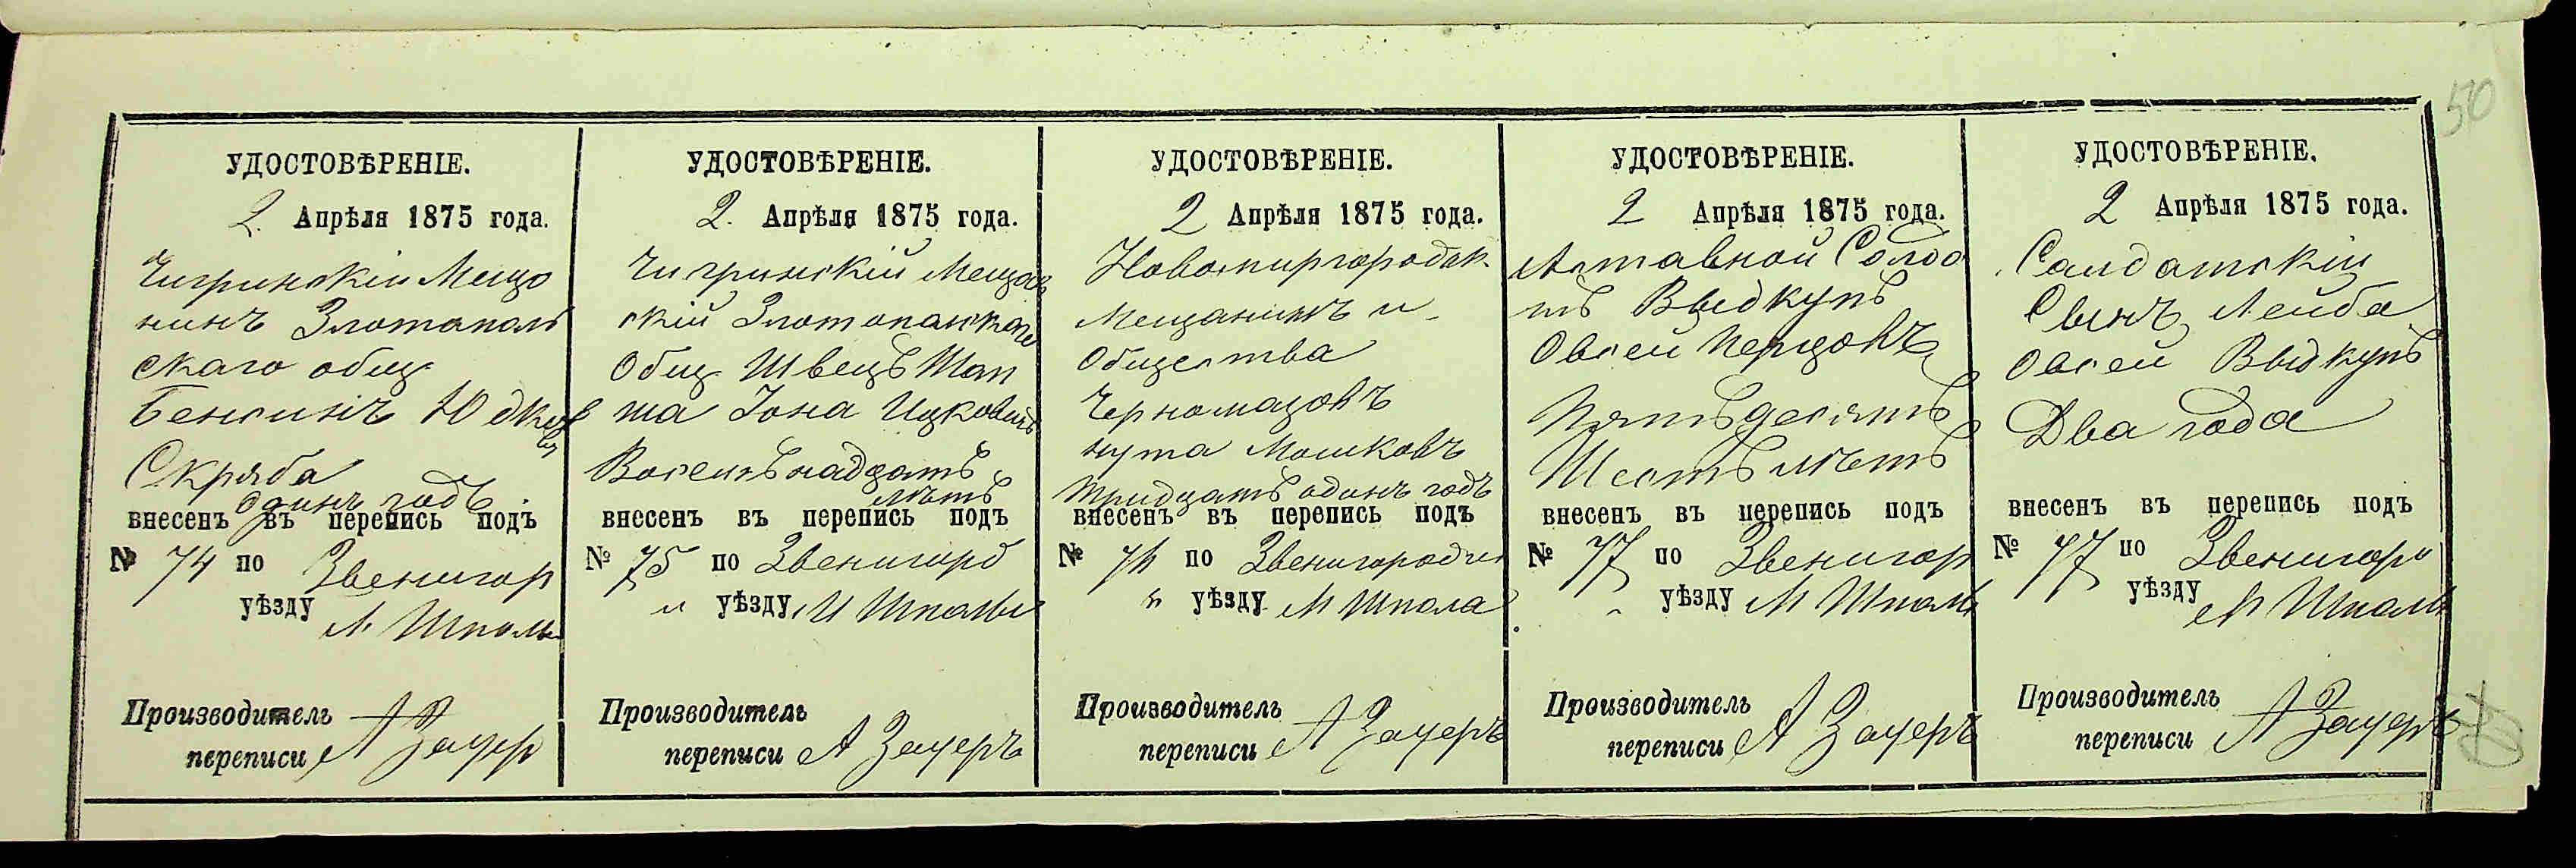 50
УДОСТОВѢРЕНІЕ.
2. Апрѣля 1875 года.
Чигринскій Мещо
нинъ Златополь
скаго общ
Бенсинъ Юдков
Скряба
одинъ годъ
внесенъ въ перепись подъ
№ 74 по Звенигор
уѣзду М. Шполы
Производитель
переписи А Зауеръ
УДОСТОВѢРЕНІЕ.
2. Апрѣля 1875 года.
Чигринскій Мещан
скій Златопольскаго
Общ Швецъ Шап
та Іона Ицковичъ
Восемьнадцать
лѣтъ
внесенъ въ перепись подъ
№ 75 по Звенигород
уѣзду М Шполы
Производитель
переписи А Зауеръ
УДОСТОВѢРЕНІЕ.
2 Апрѣля 1875 года.
Новомиргородск.
Мещанинъ и
Общества
Черномазовъ
нута Мошковъ
Тридцать одинъ годъ
внесенъ въ перепись подъ
№ 76 по Звенигородск
" уѣзду М Шпола
Производитель
переписи А Зауеръ
УДОСТОВѢРЕНІЕ.
2 Апрѣля 1875 года.
Атставной Солда
тъ Выдкупъ
Овсей Перцовъ
Пятьдесятъ
Шесть лѣтъ
внесенъ въ перепись подъ
№ 77 по Звенигор
уѣзду М Шполы
Производитель
переписи А Зауеръ
УДОСТОВѢРЕНІЕ.
2 Апрѣля 1875 года.
Салдатскій
Сынъ Лейба
Овсей Выдкупъ
Два года
внесенъ въ перепись подъ
№ 77 по Звенигоро
уѣзду М Шполы
Производитель
переписи А Зауеръ